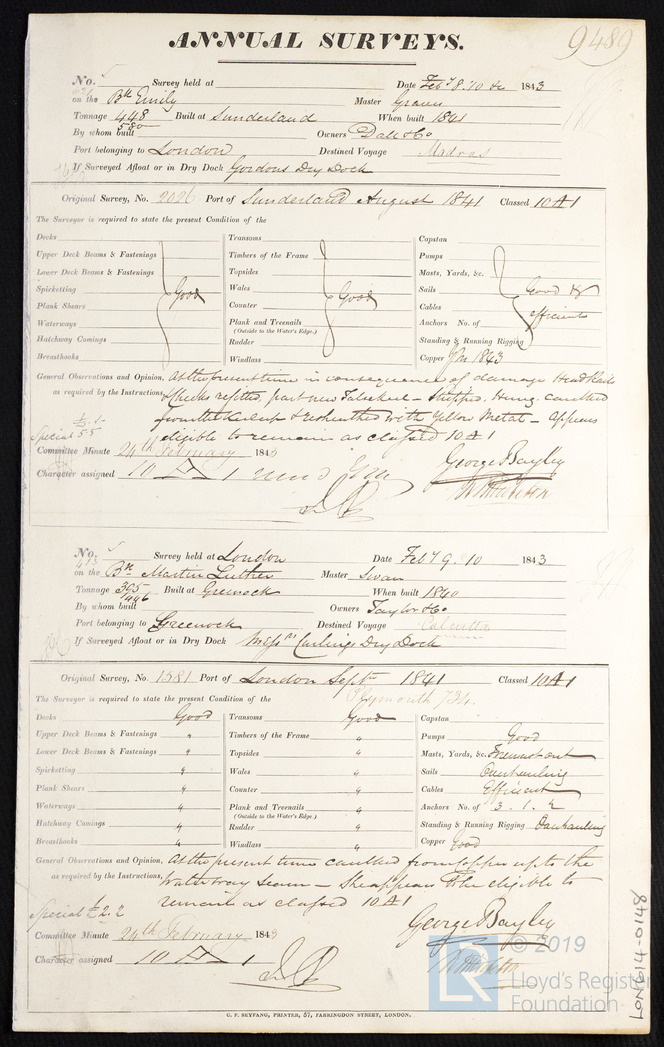 ANNUAL SURVEYS.
9489
No. Survey held at Date Feby 8. 10 &c 1843
on the Bk Emily Master Graves
Tonnage 448 580 Built at Sunderland When built 1841
By whom built Owners Dall & Co
Port belonging to London Destined Voyage Madras
If Surveyed Afloat or in Dry Dock Gordons Dry Dock
Original Survey, No. 2026 Port of Sunderland August 1841 Classed 10 A 1
The Surveyor is required to state the present Condition of the
Decks Transoms Capstan
Upper Deck Beams & Fastenings Timbers of the Frame Pumps
Lower Deck Beams & Fastenings Topsides Masts, Yards, &c.
Spirketting Good Wales Good Sails Good &
Plank Shears Counter Cables efficient
Waterways Plank and Treenails Anchors No. of
(Outside to the Water's Edge.)
Hatchway Comings Rudder Standing & Running Rigging
Breasthooks Windlass Copper 1843
General Observations and Opinion, At the present time in consequence of damage Head Rails
as required by the Instructions, & Cheeks refitted, part new False keel - Stripped. Hung. Caulked
from the keel up & resheathed with Yellow Metal - Appears
Special 5.5 eligible to remain as classed 10 A 1
Committee Minute 24th February 1843 George Bayley
Character assigned 10 A 1
No. Survey held at London Date Feby 9. 10 1843
on the Bk Martin Luther Master Swan
Tonnage 395 446 Built at Greenock When built 1840
By whom built Owners Taylor & Co
Port belonging to Greenock Destined Voyage Calcutta
If Surveyed Afloat or in Dry Dock Messrs Curlings Dry Dock
Original Survey, No. 1581 Port of London Septr 1841 Classed 10 A 1
Plymouth 734.
The Surveyor is required to state the present Condition of the
Decks Good Transoms Good Capstan
Upper Deck Beams & Fastenings " Timbers of the Frame " Pumps Good
Lower Deck Beams & Fastenings " Topsides " Masts, Yards, &c.
Spirketting " Wales " Sails Overhauling
Plank Shears " Counter " Cables Efficient
Waterways " Plank and Treenails " Anchors No. of 3. 1. 2
(Outside to the Water's Edge.)
Hatchway Comings " Rudder " Standing & Running Rigging Overhauling
Breasthooks " Windlass " Copper Good
General Observations and Opinion, At the present time caulked from Copper up to the
as required by the Instructions, Waterway seam - She appears to be eligible to
remain as classed 10 A 1
Special £2.2 George Bayley
Committee Minute 24th February 1843
Character assigned 10 A 1
© 2019
LR Lloyd's Register
Foundation
C. F. SEYFANG, PRINTER, 57, FARRINGDON STREET, LONDON.
LON614-0148